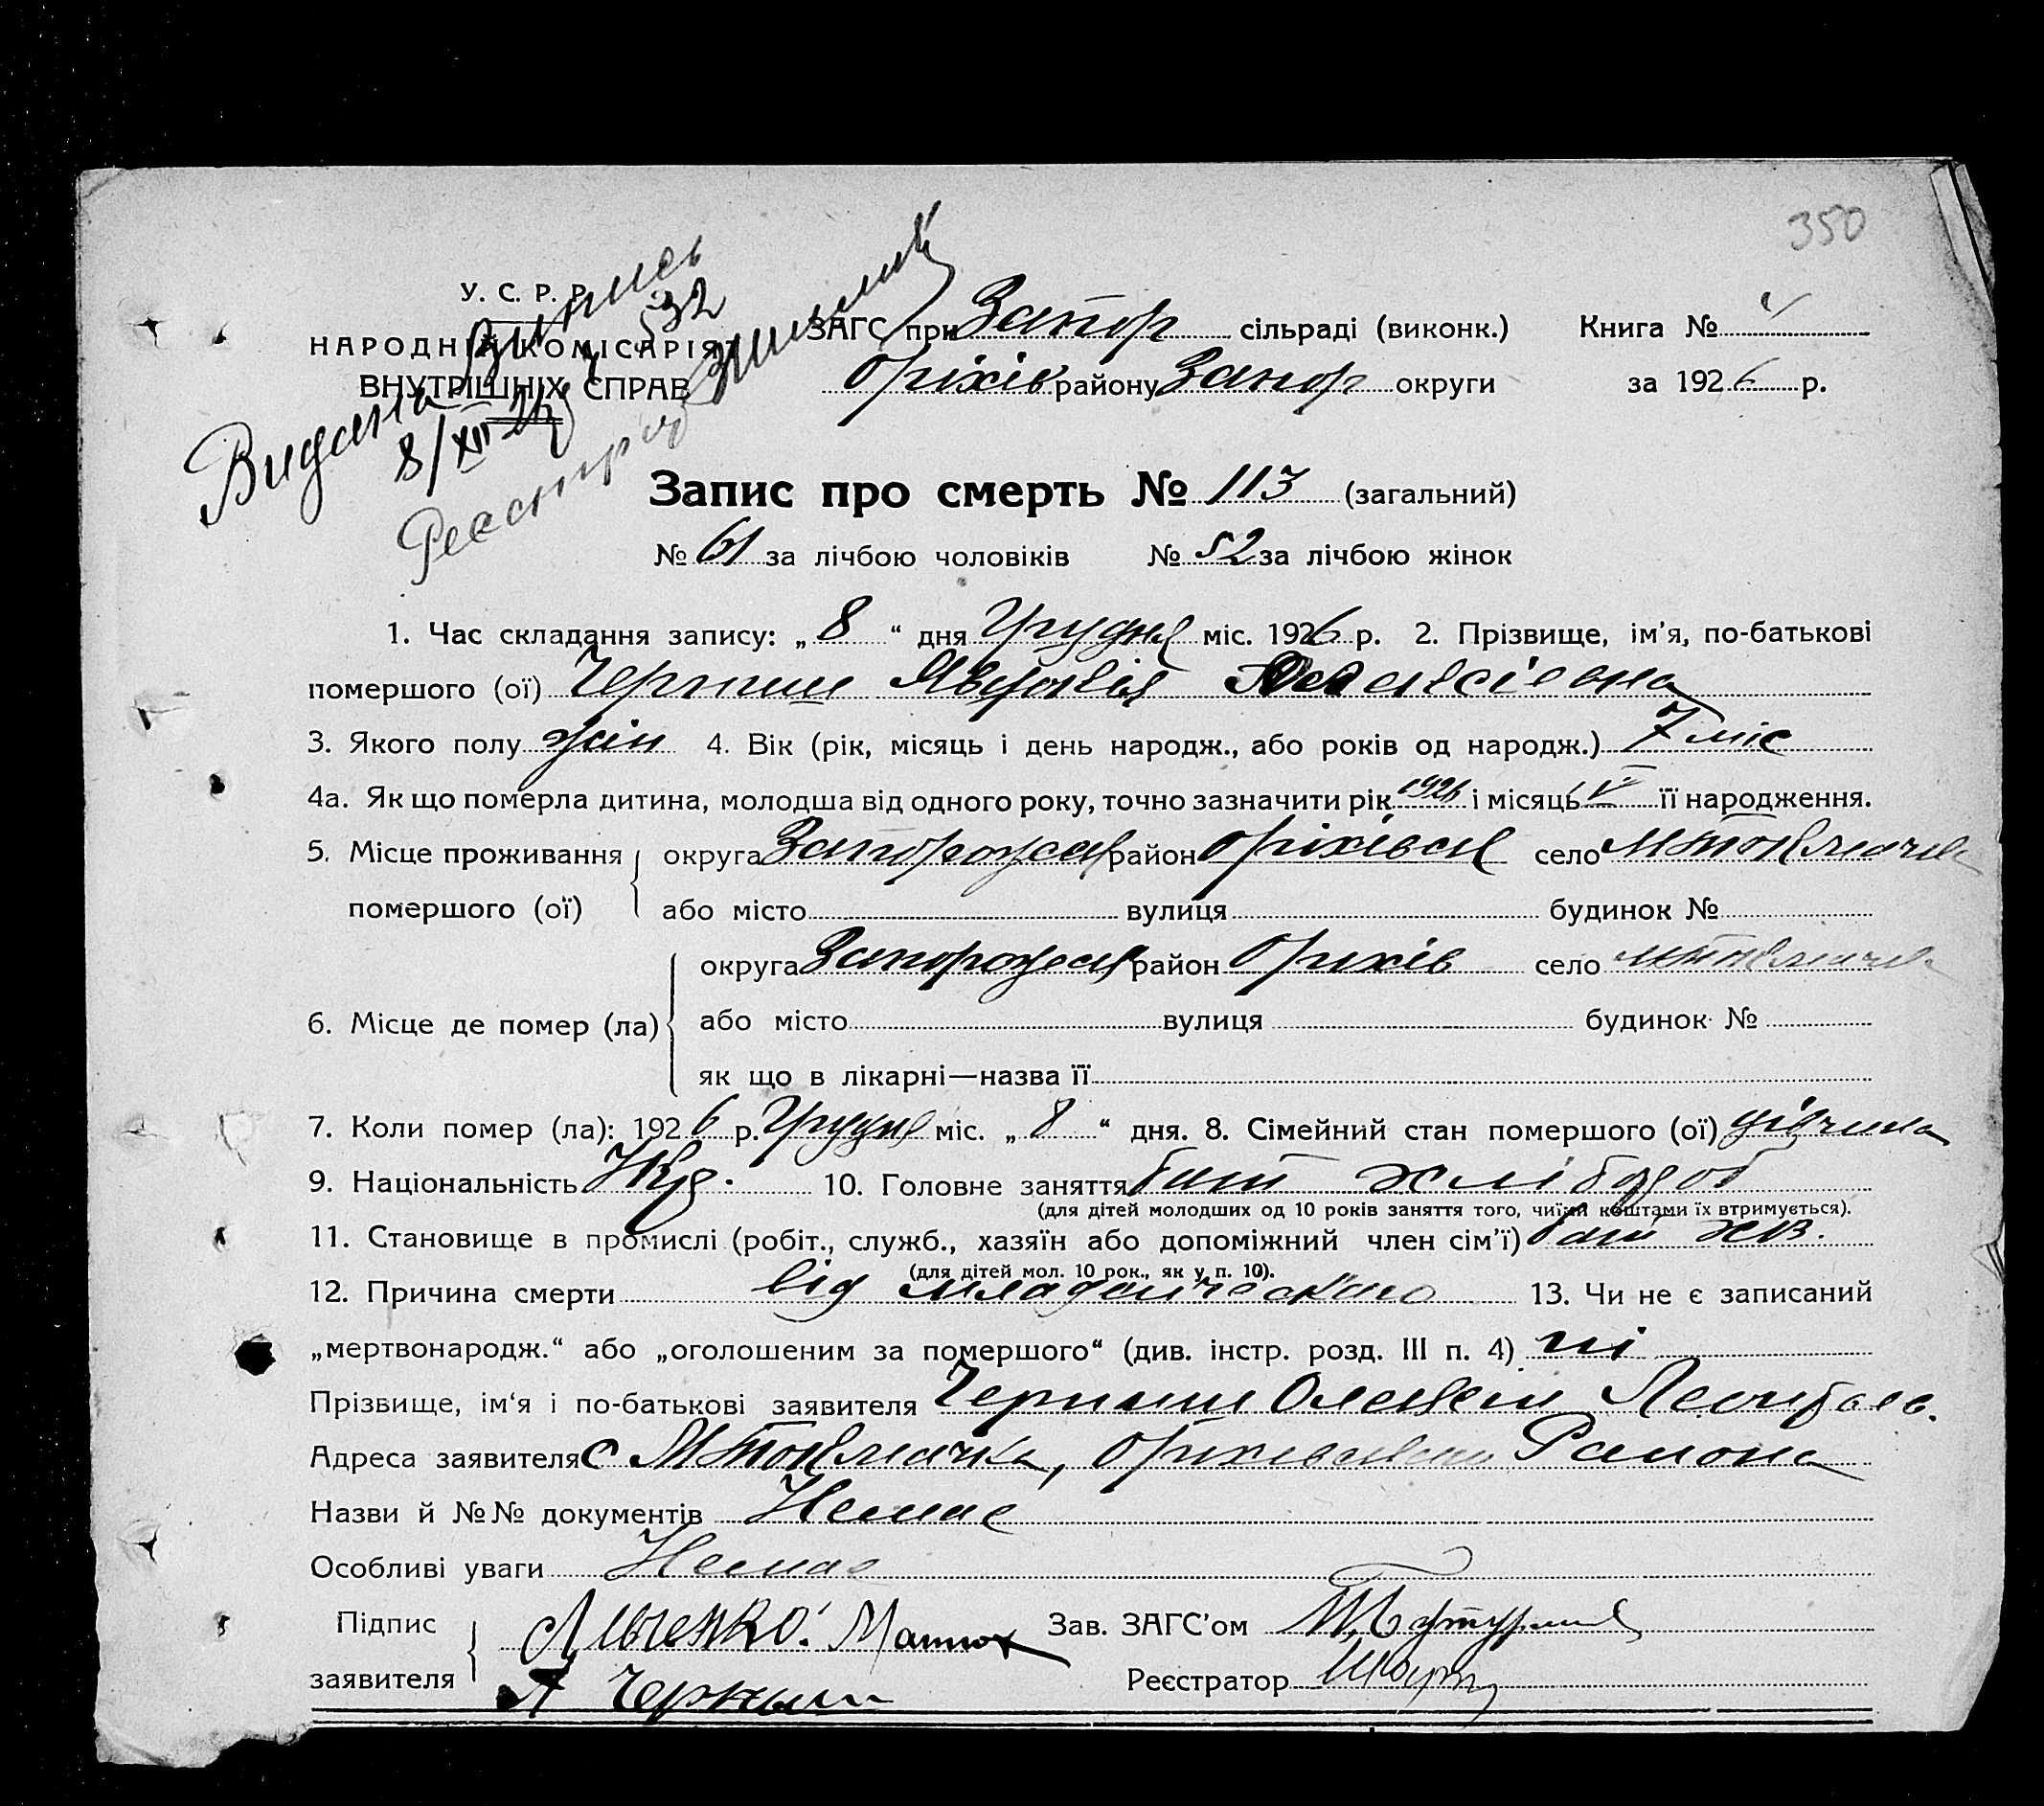 350
У. С. Р. Р.
НАРОДНІЙ КОМІСАРІЯТ
ВНУТРІШНІХ СПРАВ
Видана випись
8/XII 26 р. 532
Реєстратор
ЗАГС при Запор сільраді (виконк.) Книга №
Оріхів району Запор округи за 1926 р.
Запис про смерть № 113 (загальний)
№ 61 за лічбою чоловіків № 52 за лічбою жінок
1. Час складання запису: „8“ дня Грудня міс. 1926 р. 2. Прізвище, ім’я, по-батькові
помершого (ої) Черниш Явдокія Олексієвна
3. Якого полу жін 4. Вік (рік, місяць і день народж., або років од народж.) 7 міс
4а. Як що померла дитина, молодша від одного року, точно зазначити рік 1926 і місяць V її народження.
5. Місце проживання округа Запорожская район Оріхівскі село МТокмачка
помершого (ої) або місто вулиця будинок №
округа Запорожская район Оріхів село МТокмачка
6. Місце де помер (ла) або місто вулиця будинок №
як що в лікарні—назва її
7. Коли помер (ла): 1926 р. Грудня міс. „8“ дня. 8. Сімейний стан помершого (ої) дівчина
9. Національність Укр. 10. Головне заняття бат хлібороб
(для дітей молодших од 10 років заняття того, чиїми коштами їх втримується).
11. Становище в промислі (робіт., служб., хазяїн або допоміжний член сім’ї) бат хаз.
(для дітей мол. 10 рок., як у п. 10).
12. Причина смерти від младенческого 13. Чи не є записаний
„мертвонародж.“ або „оголошеним за помершого“ (див. інстр. розд. III п. 4) ні
Прізвище, ім‘я і по-батькові заявителя Черниш Олексей
Адреса заявителя с МТокмачка, Оріхівского Района
Назви й №№ документів Немає
Особливі уваги Немає
Підпис Зав. ЗАГС’ом
заявителя А Черныш Реєстратор